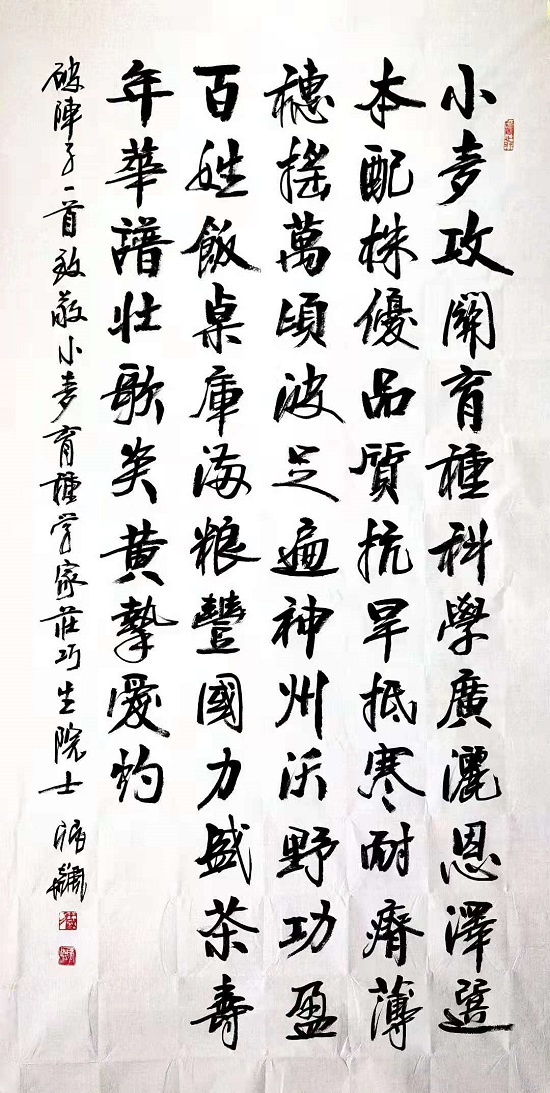 小麥攻關育種科學廣灑恩澤選
本配株優品質抗旱抵寒耐瘠薄
穗搖萬頃波芝遍神州沃野功盈
百姓飯桌庫海糧豐國力盛茶壽
年華譜壯歌炎黃摯愛灼
破陣子一首致敬小麥育種学家莊巧生院士